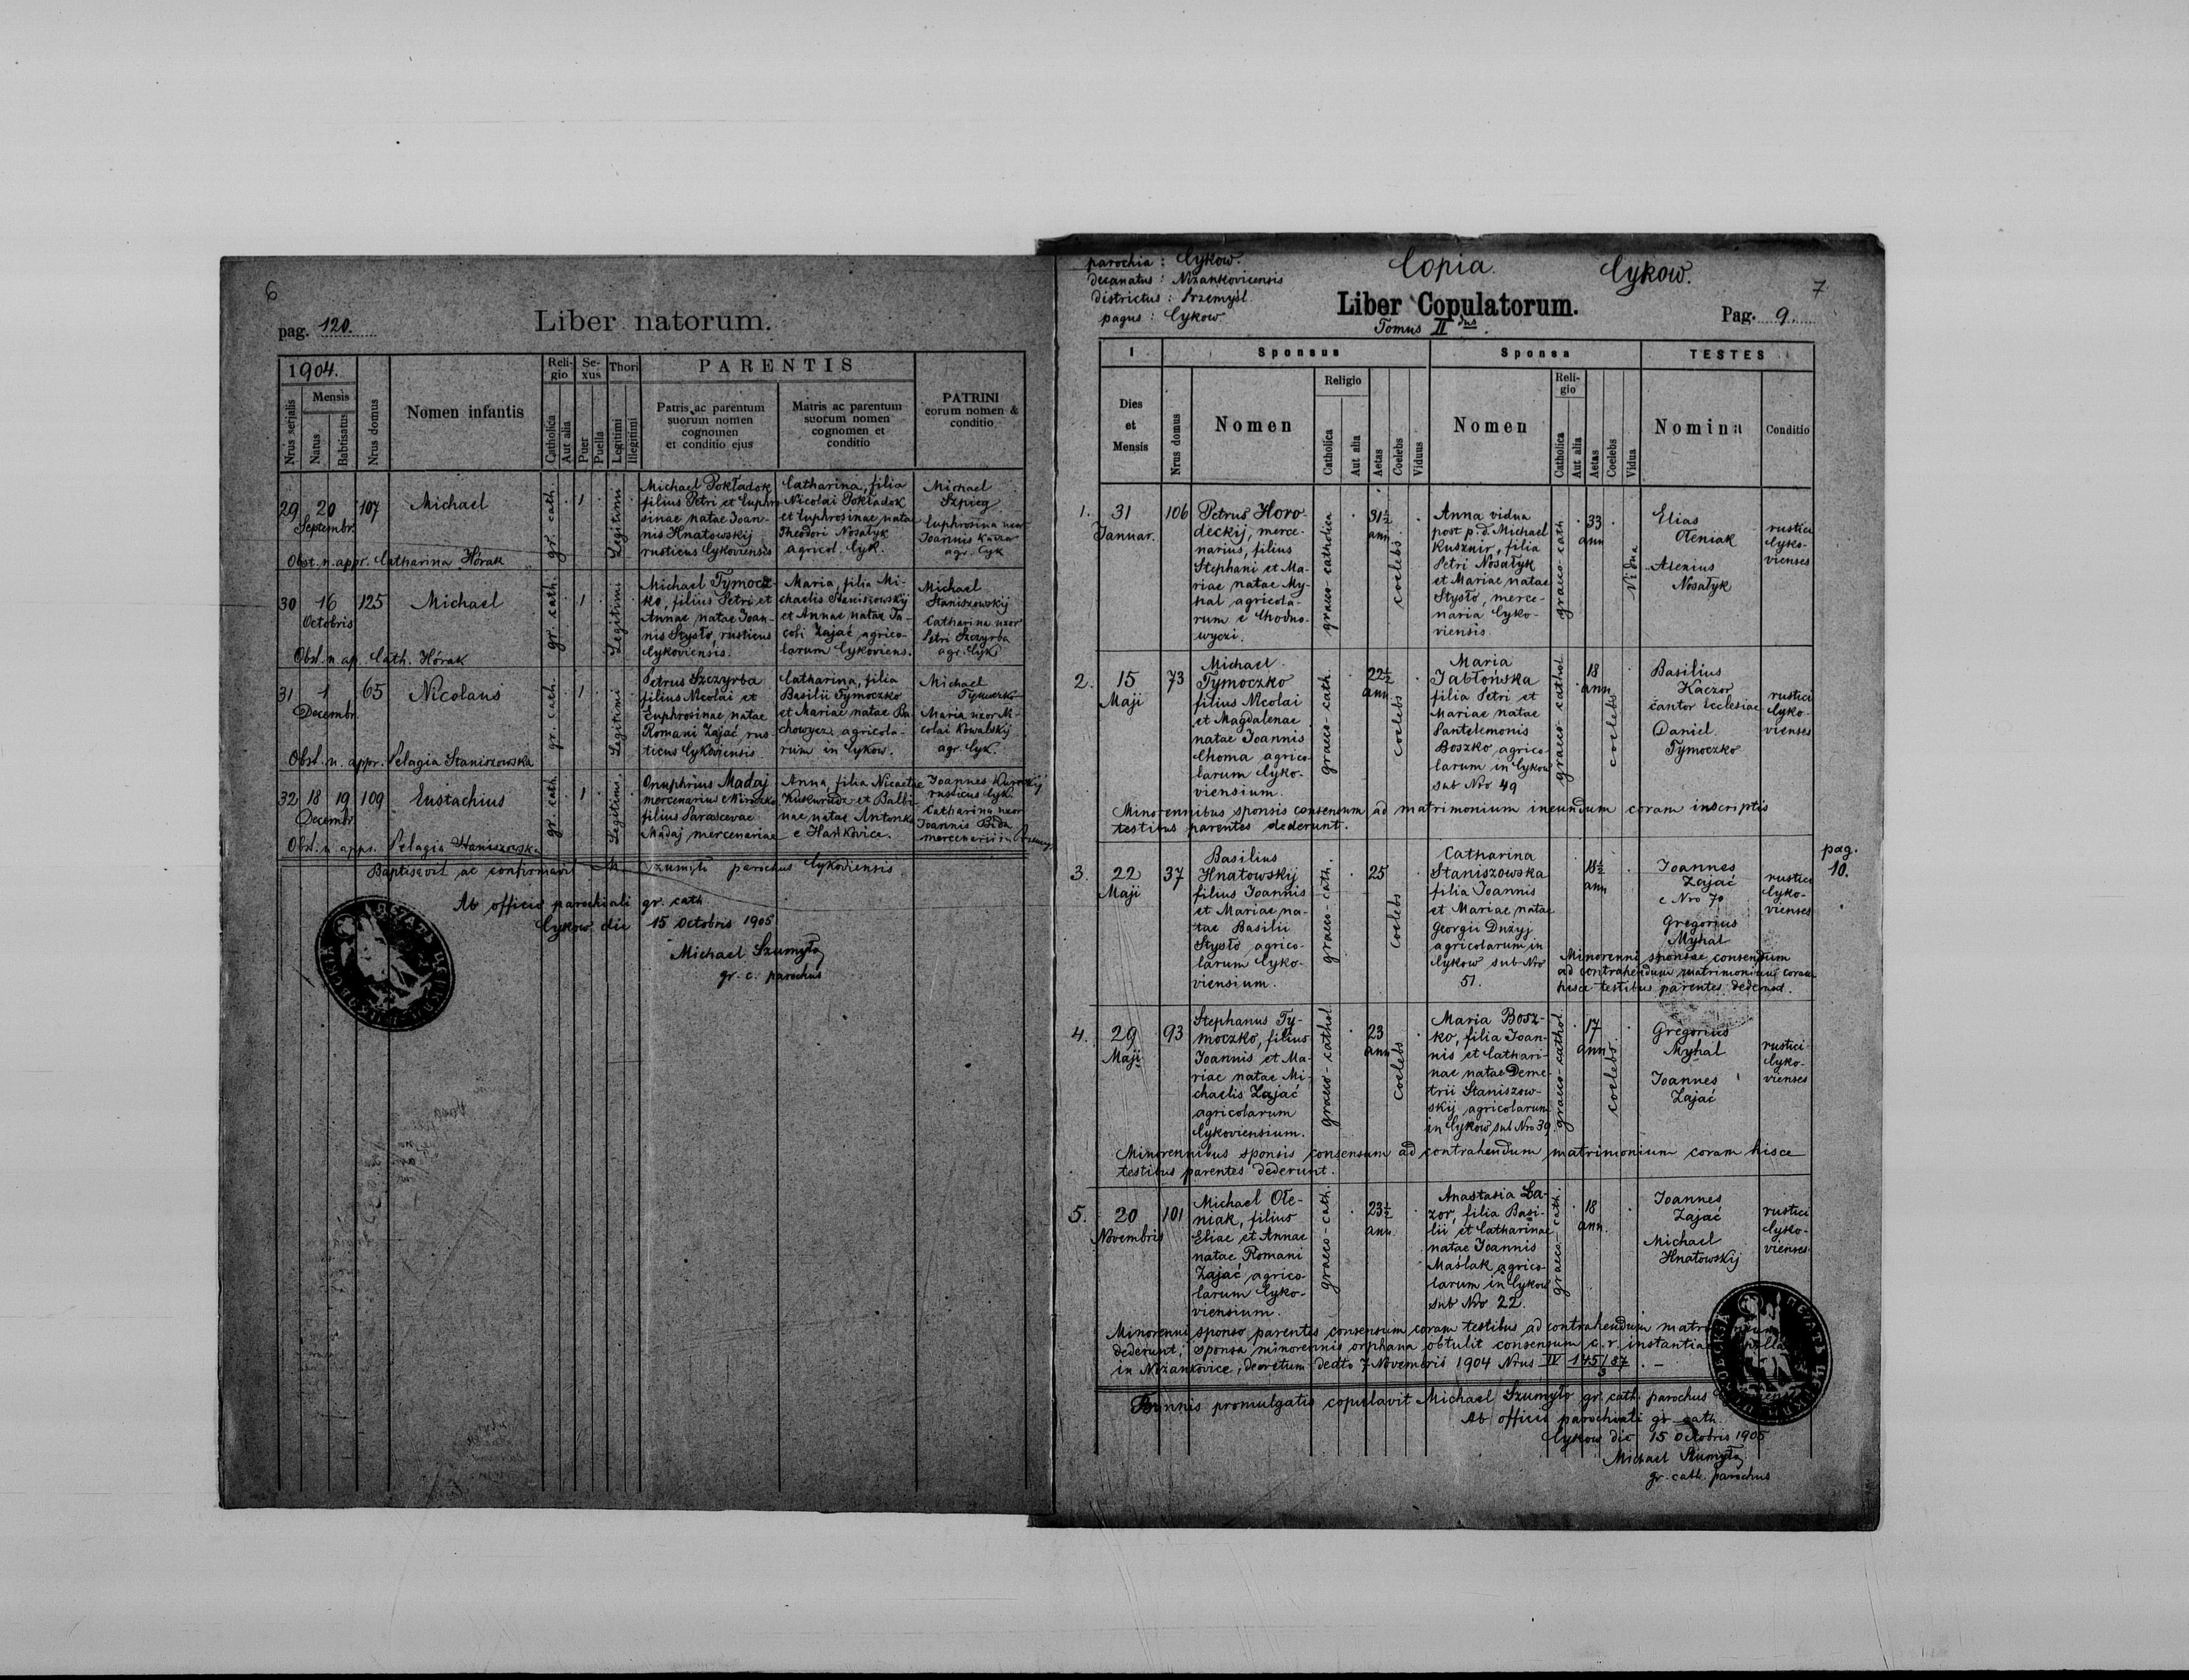 6
pag. 120.
Liber natorum.
1904.
Nrus serjalis
Mensis
Natus
Babtisatus
Nrus domus
Nomen infantis
Reli-
gio
Catholica
Aut alia
Se-
xus
Puer
Puella
Thori
Legitimi
Illegitimi
PARENTIS
Patris ac parentum
suorum nomen
cognomen
et conditio ejus
Matris ac parentum
suorum nomen
cognomen et
conditio
PATRINI
eorum nomen &
conditio
29 20 107 Michael
Septembr.
gr. cath.
1
Legitimi
Michael Pokładok
filius Petri et Euphro
sinae natae Joan-
nis Hnatowskij
rusticus Cykoviensis
Catharina, filia
Nicolai Pokładok
et Euphrosinae natae
Theodori Nosałyk
agricol. Cyk.
Michael
Szpieg
Euphrosina uxor
Joannis
agr. Cyk
Obst. n. appr. Catharina Hórak
30 16 125 Michael
Octobris
gr. cath.
1
Legitimi
Michael Tymocz-
ko, filius Petri et
Annae natae Joan-
nis Stysło, rusticus
Cykoviensis.
Maria, filia Mi-
chaelis Staniszowskij
et Annae natae Ja-
cobi Zając agrico-
larum Cykoviens.
Michael
Staniszowskij
Catharina uxor
Petri Szczyrba
agr. Cyk
Obst. n. ap. Cath. Hórak
31 1 65 Nicolaus
Decembr.
gr. cath.
1
Legitimi
Petrus Szczyrba
filius Nicolai et
Euphrosinae natae
Romani Zając rus-
ticus Cykoviensis
Catharina, filia
Basilii Tymoczko
et Mariae natae Ba
chowycz agricola-
rum in Cykow.
Michael
Tymoczko
Maria uxor Ni-
colai Kowalskij
agr. Cyk.
Obst. n. appr. Pelagia Staniszowska
32 18 19 109 Eustachius
Decembr
gr. cath.
1
Legitimi.
Onuphrius Madaj
mercenarius e
filius Parascevae
Madaj mercenariae
Anna, filia Nicaetae
Kukurudz et Balbi-
nae natae Antonko
e Hańkovice.
Joannes
rusticus Cyk.
Catharina uxor
Joannis Bida
mercenarii in
Obst. n. appr. Pelagia Staniszowska
Baptisavit ac confirmavit M Szumyło parochus Cykoviensis.
Ab officio parochiali gr. cath
Cykow die 15 Octobris 1905
Michael Szumyło
gr. c. parochus
parochia: Cykow.
decanatus: Niżankovicensis
districtus: Przemyśl
pagus: Cykow.
Copia.
Cykow.
7
Liber Copulatorum.
Tomus II dus.
Pag. 9.
1
Dies
et
Mensis
Sponsus
Nrus domus
Nomen
Religio
Catholica
Aut alia
Aetas
Coelebs
Viduus
Sponsa
Nomen
Reli-
gio
Catholica
Aut alia
Aetas
Coelebs
Vidua
TESTES
Nomina
Conditio
1. 31 106
Januar.
Petrus Horo-
deckij, merce-
narius, filius
Stephani et Ma-
riae natae My-
hal agricola-
rum e Chodno-
wyczi.
graeco-catholica
31½
ann
coelebs
Anna vidua
post p. d. Michael
Kusznir, filia
Petri Nosałyk
et Mariae natae
Stysło, merce-
naria Cyko-
viensis.
graeco-cath
33
ann
Vidua
Elias
Ołeniak
Alexius
Nosałyk
rustici
Cyko-
vienses
2. 15 73
Maji
Michael
Tymoczko
filius Nicolai
et Magdalenae
natae Joannis
Choma agrico-
larum Cyko-
viensium.
graeco-cath.
22½
ann
coelebs
Maria
Jabłońska
filia Petri et
Mariae natae
Pantelemonis
Boszko agrico-
larum in Cykow
sub Nro 49
graeco-cathol
18
ann
coelebs
Basilius
Kaczor
cantor Ecclesiae
Daniel
Tymoczko
rustici
Cyko-
vienses
Minorennibus sponsis consensum ad matrimonium ineundum coram inscriptis
testibus parentes dederunt.
pag.
10.
3. 22 37
Maji
Basilius
Hnatowskij
filius Joannis
et Mariae na-
tae Basilii
Stysło agrico-
larum Cyko-
viensium.
graeco-cath.
25
coelebs
Catharina
Staniszowska
filia Joannis
et Mariae natae
Georgii Dużyj
agricolarum in
Cykow sub Nro
51.
18½
ann
Joannes
Zając
e Nro 70
Gregorius
Myhal
rustici
Cyko-
vienses
Minorenni sponsae consensum
ad contrahendum matrimonium coram
hisce testibus parentes dederunt.
4. 29 93
Maji
Stephanus Ty-
moczko, filius
Joannis et Ma-
riae natae Mi-
chaelis Zając
agricolarum
Cykoviensium.
graeco-cathol
23
ann
coelebs
Maria Bosz-
ko, filia Joan-
nis et Cathari-
nae natae Deme-
trii Staniszow-
skij agricolarum
in Cykow sub Nro 39.
graeco-cathol
17
ann
coelebs
Gregorius
Myhal
Joannes
Zając
rustici
Cyko-
vienses
Minorennibus sponsis consensum ad contrahendum matrimonium coram hisce
testibus parentes dederunt.
5. 20 101
Novembris
Michael Ole-
niak, filius
Eliae et Annae
natae Romani
Zając agrico-
larum Cyko-
viensium.
graeco-cath.
23½
ann.
Anastasia Ła-
zor, filia Basi-
lii et Catharinae
natae Joannis
Maślak agrico-
larum in Cykow
sub Nro 22.
graeco-cath.
18
ann.
Joannes
Zając
Michael
Hnatowskij
rustici
Cyko-
vienses
Minorenni sponso parentes consensum coram testibus ad contrahendum
dederunt; sponsa minorennis orphana obtulit consensum c. r. instantiae
in Niżankovice, decretum ddto 7 Novembris 1904 Nrus IV 145/87
3
Bannis promulgatis copulavit Michael Szumyło gr. cath. parochus
Ab officio parochiali gr cath.
Cykow die 15 Octobris 1905
Michael Szumyło
gr. cath. parochus